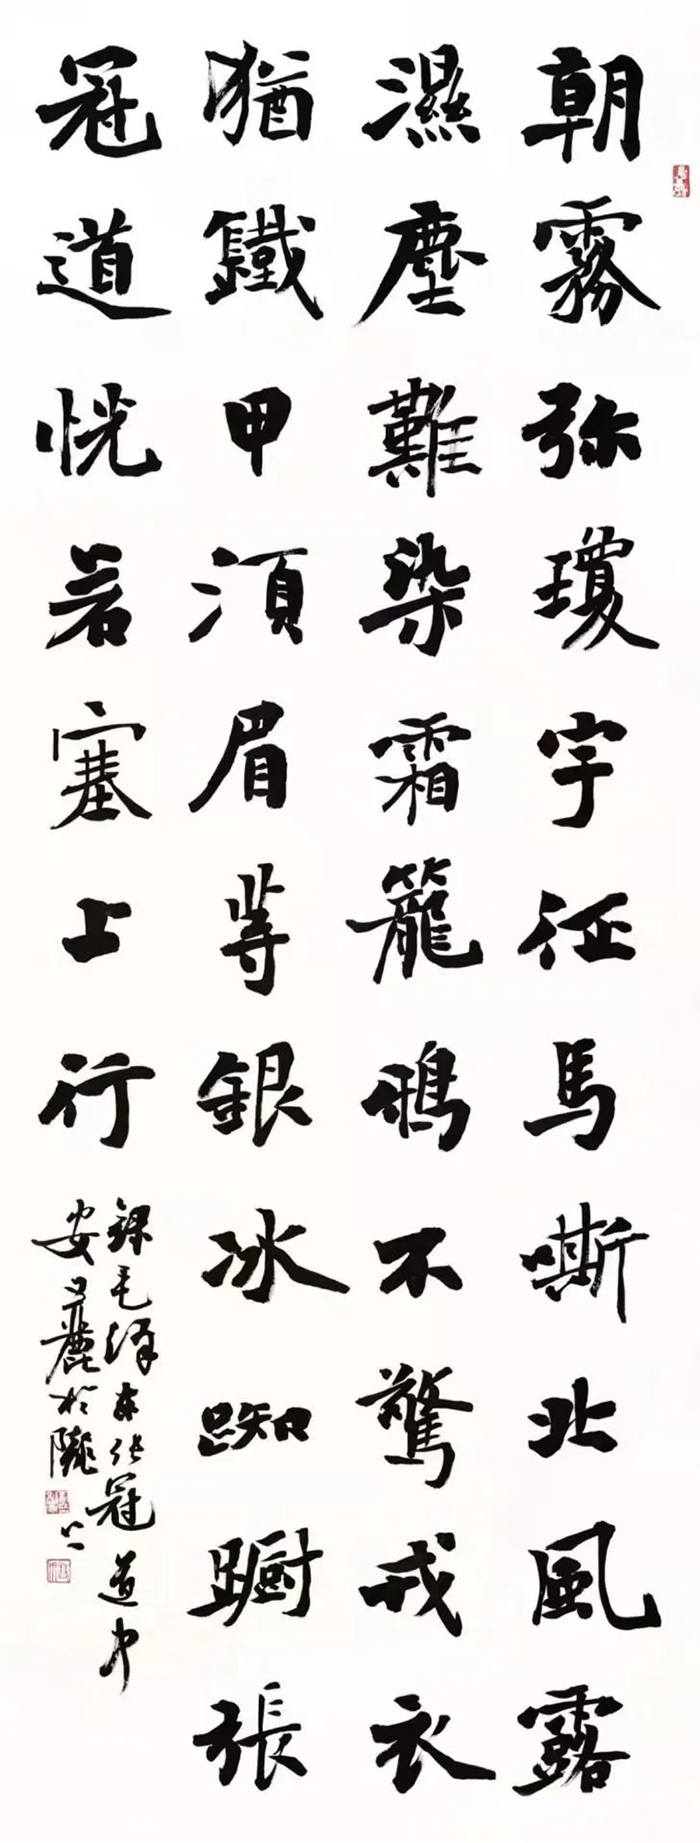 朝霧弥瓊宇征馬嘶北風露
濕塵難染霜籠鴉不驚戎衣
猶鐵甲湏眉等銀冰踟蹰張
冠道恍若塞上行
錄毛澤東張冠道中
安麗於隴上